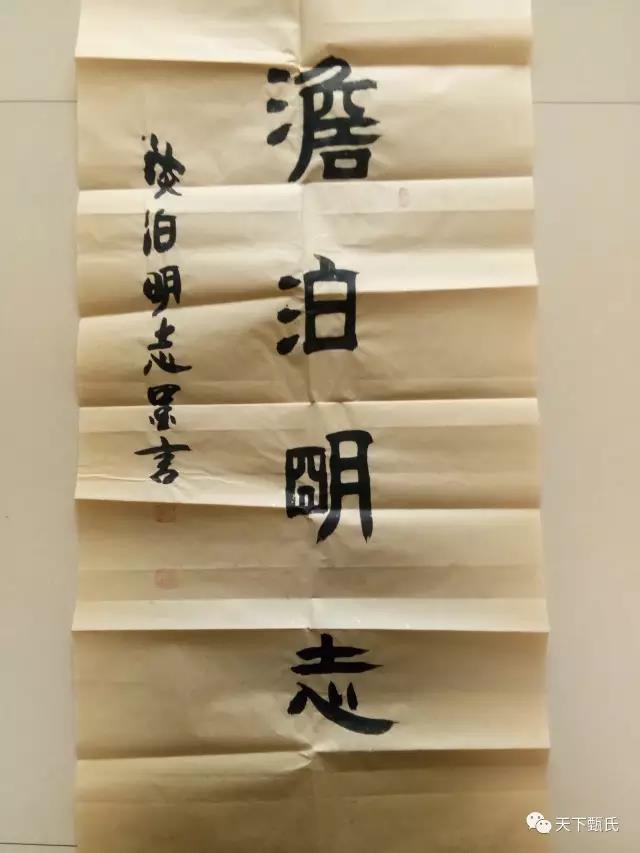 澹泊明志
淡泊明志墨言
天下甄氏